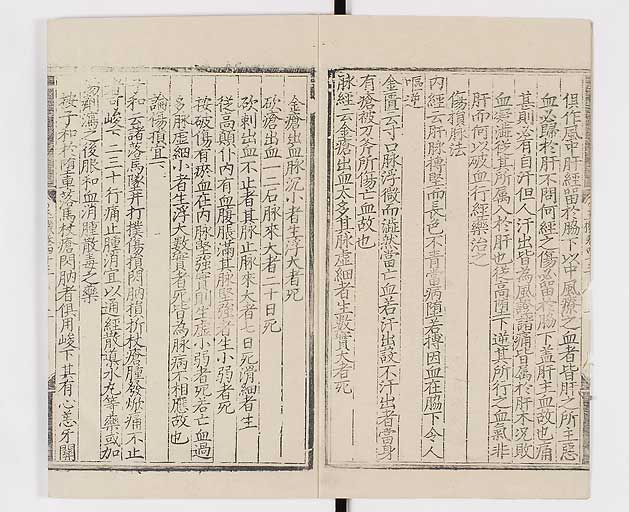 俱作風中肝經留於脇下以中風療之血者皆肝之所主惡
血必歸於肝不問何經之傷必留於脇下蓋肝主血故也痛
甚則必有自汗但人汗出皆為風證諸痛皆屬於肝木况敗
血凝泣從其所屬入於肝也從高墮下逆其所行之血氣非
肝而何以破血行經藥治之
傷損脉法
內經云肝脉搏堅而長色不青當病墮若搏因血在脇下令人
嘔逆
金匱云寸口脉浮微而澁然當亡血若汗出設不汗出者當身
有瘡被刀斧所傷亡血故也
脉經云金瘡出血太多其脉虛細者生數實大者死
金瘡出血脉沉小者生浮大者死
斫瘡出血一二石脉來大者二十日死
斫刺出血不止者其脉止脉來大者七日死滑細者生
從高顛仆內有血腹脹滿其脉堅強者生小弱者死
按破傷有瘀血在內脉堅強實則生虛小弱者死若亡血過
多脉虛細小者生浮大數實者死皆為脉病不相應故也
論傷損宜下
子和云諸落馬墜井打撲傷損閃肭損折杖瘡腫發焮痛不止
者可峻下二三十行痛止腫消宜以通經散導水丸等藥或加
湯劑瀉之後服和血消腫散毒之藥
按子和於墮車落馬杖瘡閃肭者俱用峻下其有心恙牙關